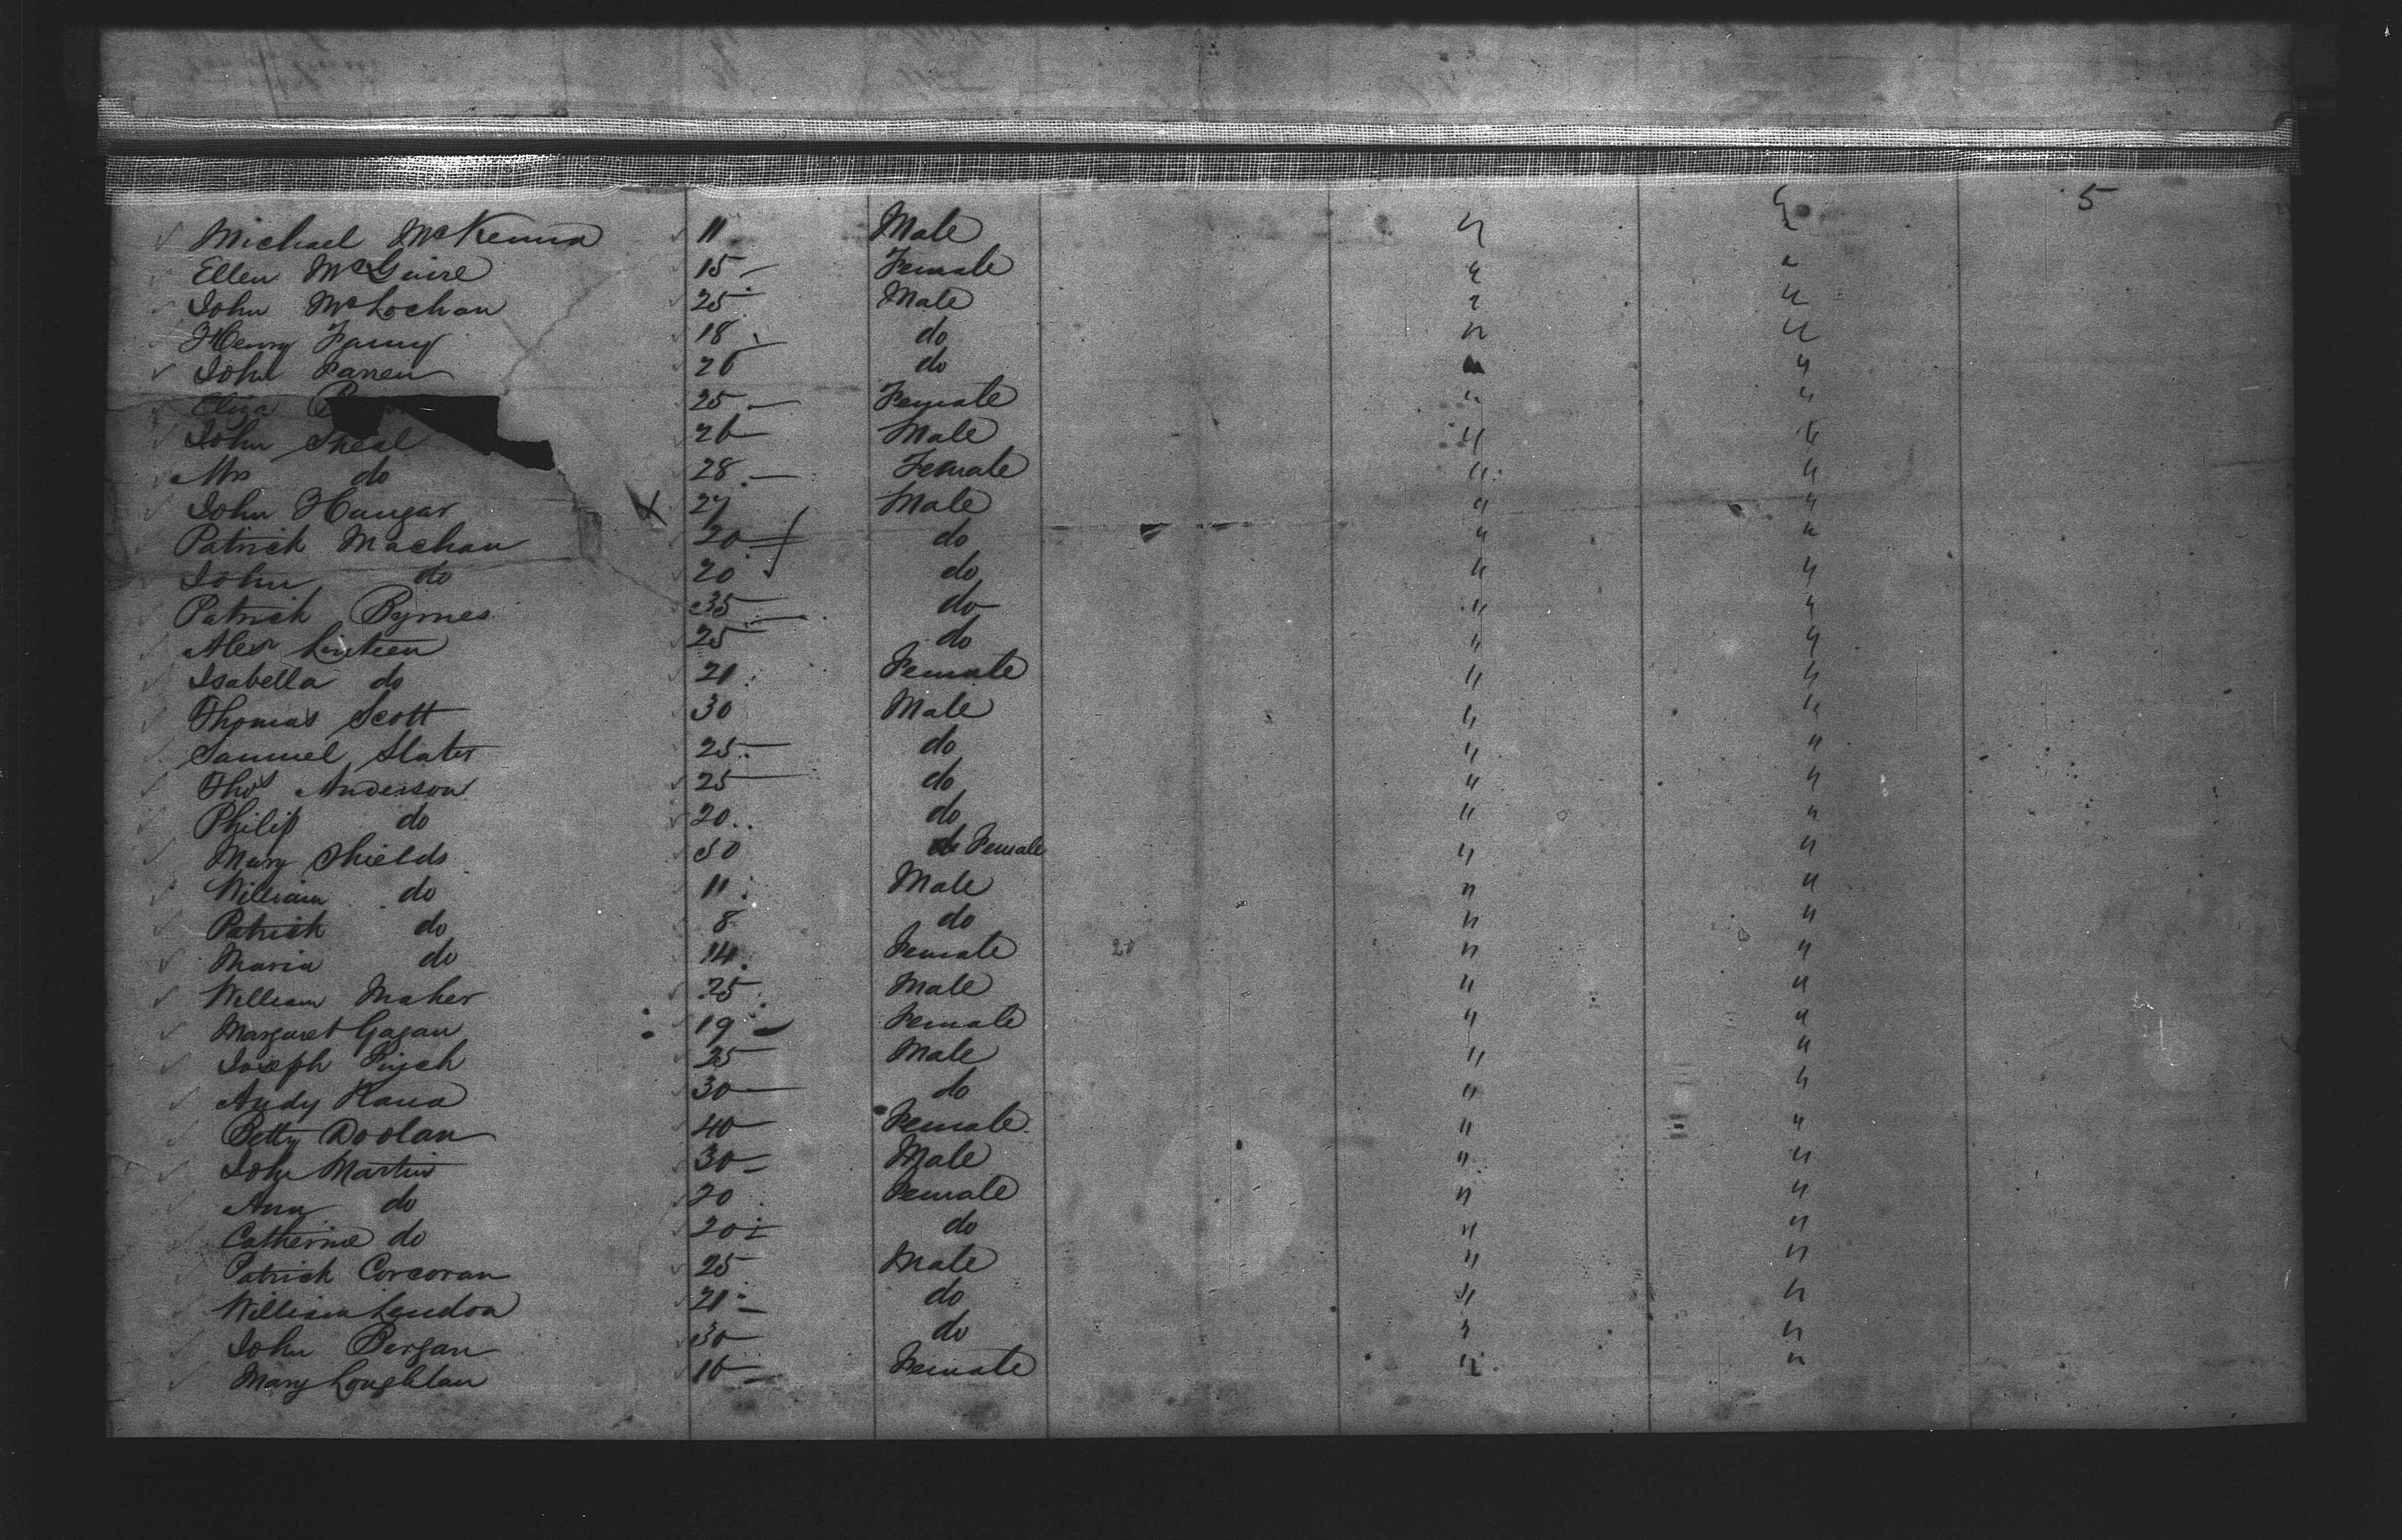 5
Michael McKenna 11 Male " "
Ellen McGuire 15 Female " "
John McLochan 25 Male " "
Henry Fanny 18 do " "
John Farren 26 do " "
Eliza 25 Female " "
John Sheal 26 Male " "
Mrs do 28 Female " "
John Hungar 27 Male " "
Patrick Machan 20 do " "
John do 20 do " "
Patrick Byrnes 35 do " "
Alexr Linteen 25 do " "
Isabella do 21 Female " "
Thomas Scott 30 Male " "
Samuel Slater 25 do " "
Thos Anderson 25 do " "
Philip do 20 do " "
Mary Shields 50 Female " "
William do 11 Male " "
Patrick do 8 do " "
Maria do 14 Female " "
William Maher 25 Male " "
Margaret Gagan 19 Female " "
Joseph 25 Male " "
Andy 30 do " "
Betty Doolan 40 Female " "
John Martin 30 Male " "
Ann do 20 Female " "
Catherine do 20 do " "
Patrick Corcoran 25 Male " "
William Lendon 21 do " "
John Bergan 30 do " "
Mary Loughlan 16 Female " "